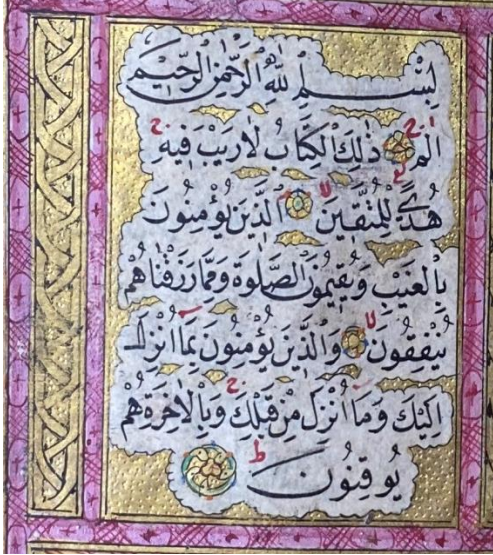 بِسْمِ اللّٰهِ الرَّحْمٰنِ الرَّحِيْمِ
الم ج ذٰلِكَ الْكِتَابُ لَارَيْبَ فِيهِ ج
هُدًى لِلْمُتَّقِينَ لا الَّذِينَ يُؤْمِنُونَ
بِالْغَيْبِ وَيُقِيمُونَ الصَّلٰوةَ وَمِمَّا رَزَقْنَاهُمْ
يُنْفِقُونَ لا وَالَّذِينَ يُؤْمِنُونَ بِمَا اُنْزِلَ
اِلَيْكَ وَمَا اُنْزِلَ مِنْ قَبْلِكَ ج وَبِالْاٰخِرَةِ هُمْ
يُوقِنُونَ ط